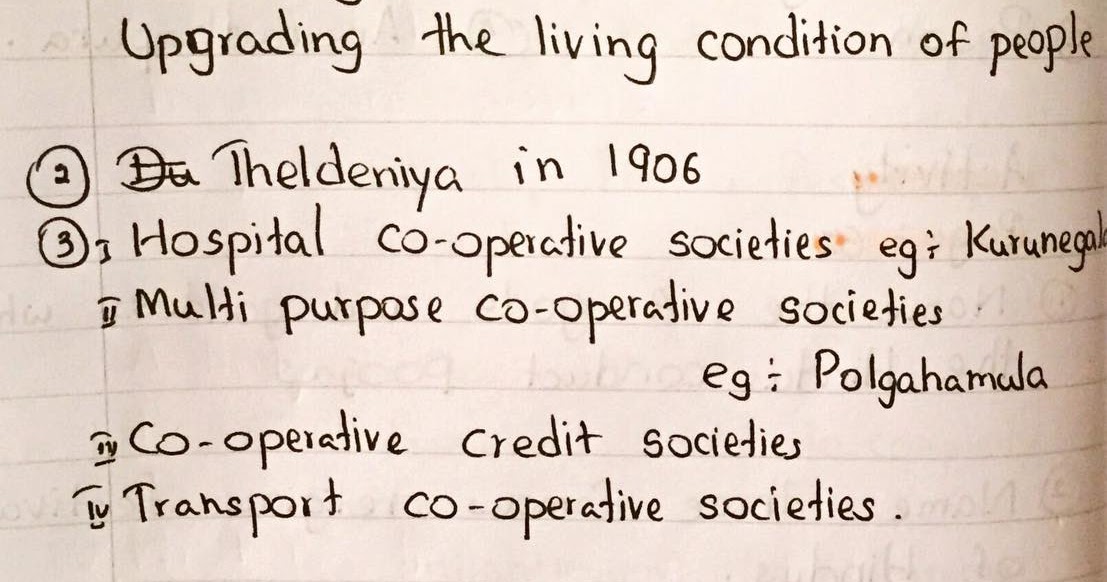 Upgrading the living condition of people
② Du Theldeniya in 1906
③ I Hospital co-operative societies eg: Kurunegala
II Multi purpose co-operative societies
eg: Polgahamula
IV Co-operative credit societies
IV Transport co-operative societies.